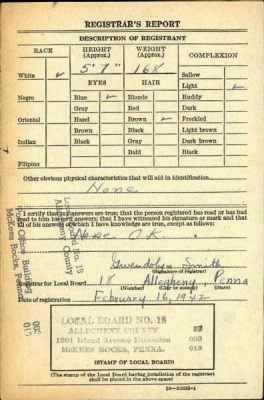 REGISTRAR'S REPORT
DESCRIPTION OF REGISTRANT
RACE HEIGHT (Approx.) WEIGHT (Approx.) COMPLEXION
5' 7" 168 Sallow
White ✓ EYES HAIR Light ✓
Negro Blue ✓ Blonde Ruddy
Gray Red Dark
Oriental Hazel Brown ✓ Freckled
Brown Black Light brown
Indian Black Gray Dark brown
Bald Black
Filipino
Other obvious physical characteristics that will aid in identification
None
I certify that my answers are true; that the person registered has read or has had
read to him his own answers; that I have witnessed his signature or mark and that
all of his answers of which I have knowledge are true, except as follows:
None O.K.
Gwendolyn Smith
(Signature of registrar)
Registrar for Local Board 18 Allegheny, Penna
(Number) (City or county) (State)
Date of registration February 16, 1942
Local Board No. 18
Allegheny County
Post Office Building
McKees Rocks, Penna.
LOCAL BOARD NO. 18
ALLEGHENY COUNTY
1301 Island Avenue Extension 003
McKEES ROCKS, PENNA. 018
(STAMP OF LOCAL BOARD)
(The stamp of the Local Board having jurisdiction of the registrant
shall be placed in the above space)